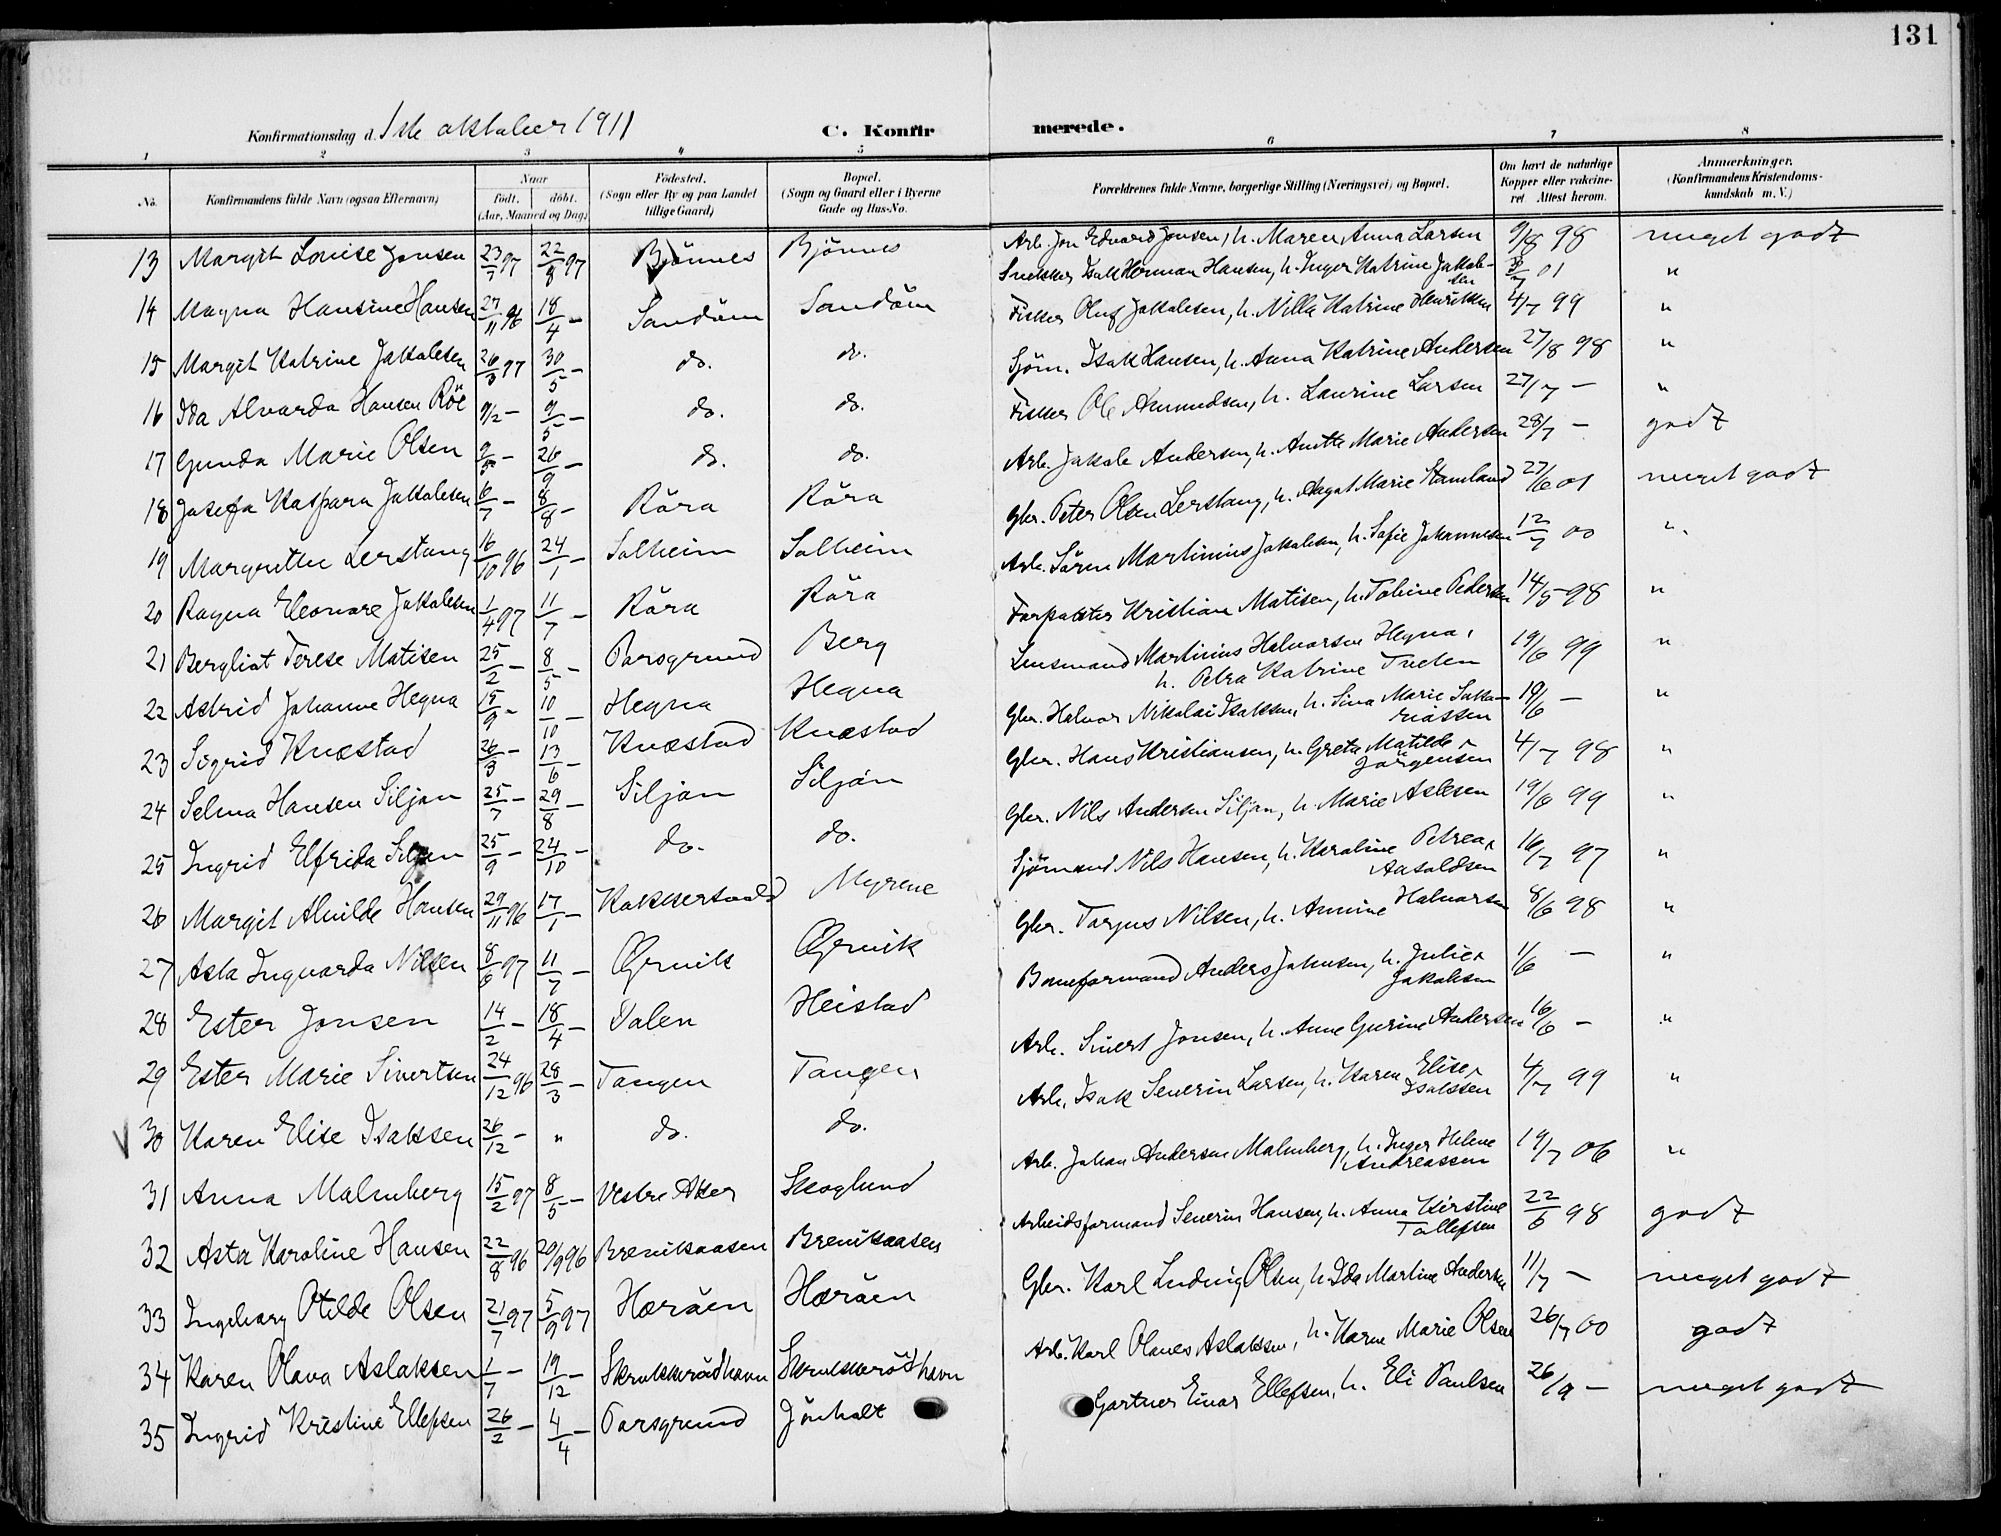 131
Konfirmationsdag d. 1ste oktober 1911
C. Konfirmerede.
1 2 3 4 5 6 7 8
No. Konfirmandens fulde Navn (ogsaa Efternavn) Naar født. døbt. (Aar, Maaned og Dag) Fødested. (Sogn eller By og paa Landet tillige Gaard) Bopæl. (Sogn og Gaard eller i Byerne Gade og Hus-No. Forældrenes fulde Navne, borgerlige Stilling (Næringsvei) og Bopæl. Om havt de naturlige Kopper eller vakcineret Attest herom. Anmærkninger. (Konfirmandens Kristendomskundskab m. V.)
13 Margit Louise Jonsen 23/7 97 22/8 97 Bjönnes Bjönnes Arb. Jon Edvard Jonsen, h. Maren Anna Larsen 9/8 98 meget godt
14 Magna Hansine Hansen 27/11 96 18/4 – Sandöen Sandöen Snekker Isak Herman Hansen, h. Inger Katrine Jakobsen 01 "
15 Margit Katrine Jakobsen 26/3 97 30/5 – do. do. Fisker Oluf Jakobsen, h. Nilla Katrine Henriksen 4/7 99 "
16 Ida Alvarda Hansen Röe 9/2 – 9/5 – do. do. Sjöm. Isak Hansen, h. Anna Katrine Andersen 27/8 98 "
17 Gunda Marie Olsen 9/5 – 26/9 – do. do. Fisker Ole Amundsen, h. Laurine Larsen 27/7 – "
18 Josefa Kaspara Jakobsen 6/7 – 8/8 – Röra Röra Arb. Jakob Andersen, h. Anette Marie Andersen 28/7 – godt
19 Margrethe Lerstang 16/10 96 24/1 – Solheim Solheim Gbr. Peter Olsen Lerstang, h. Aagot Marie Stamland 27/6 01 meget godt
20 Ragna Eleonore Jakobsen 1/4 97 11/7 – Röra Röra Arb. Sören Martinius Jakobsen, h. Sofie Johannesen 12/7 00 "
21 Bergliot Terese Matisen 25/2 – 8/5 – Porsgrund Berg Forpakter Kristian Matisen, h. Tobine Pedersen 14/5 98 "
22 Astrid Johanne Hegna 15/9 – 10/10 – Hegna Hegna Lensmand Martinius Halvorsen Hegna, h. Petra Katrine Tveten 19/6 99 "
23 Sigrid Knæstad 26/3 – 13/6 – Knæstad Knæstad Gbr. Halvor Nikolai Isaksen, h. Sina Marie Sakariassen 19/6 – "
24 Selma Hansen Siljan 25/7 – 29/8 – Siljan Siljan Gbr. Hans Kristiansen, h. Greta Matilde Jörgensen 4/7 98 "
25 Ingrid Elfrida Siljan 25/9 – 24/10 – do. do. Gbr. Nils Andersen Siljan, h. Marie Aslesen 19/6 99 "
26 Margit Alvilde Hansen 29/11 96 17/1 – Kokkersvold Myrene Sjömand Nils Hansen, h. Karoline Petrea Aasoldsen 16/7 97 "
27 Asta Ingvarda Nilsen 8/6 97 11/7 – Öjervik Öjervik Gbr. Torjus Nilsen, h. Annine Halvorsen 8/6 98 "
28 Ester Jonsen 14/2 – 18/4 – Dalen Heistad Baneformand Anders Johnsen, h. Julie Jakobsen 1/6 – "
29 Ester Marie Sivertsen 24/12 96 28/3 – Tangen Tangen Arb. Sivert Jonsen, h. Anne Gurine Andersen 16/6 – "
30 Karen Elise Isaksen 26/12 – " do. do. Arb. Isak Severin Larsen, h. Karen Elise Isaksen 4/7 99 "
31 Anna Malmberg 15/2 97 8/5 – Vestre Aker Skoglund Arb. Johan Anderson Malmberg, h. Inger Helene Andreassen 19/7 06 "
32 Asta Karoline Hansen 22/8 96 20/9 96 Breviksaasen Breviksaasen Arbeidsformand Severin Hansen, h. Anna Kirstine Tollefsen 22/6 98 godt
33 Ingeborg Otilde Olsen 21/7 97 5/9 97 Heröen Heröen Gbr. Karl Ludvig Olsen, h. Ida Martine Andersen 11/7 – meget godt
34 Karen Olava Aslaksen 1/7 – 19/12 – Skrukkerödhavn Skrukkerödhavn Arb. Karl Olaves Aslaksen, h. Karen Marie Olsen 26/7 00 godt
35 Ingrid Kristine Ellefsen 26/2 – 4/4 – Porsgrund Jönholt Gartner Einar Ellefsen, h. Eli Paulsen 26/9 – meget godt